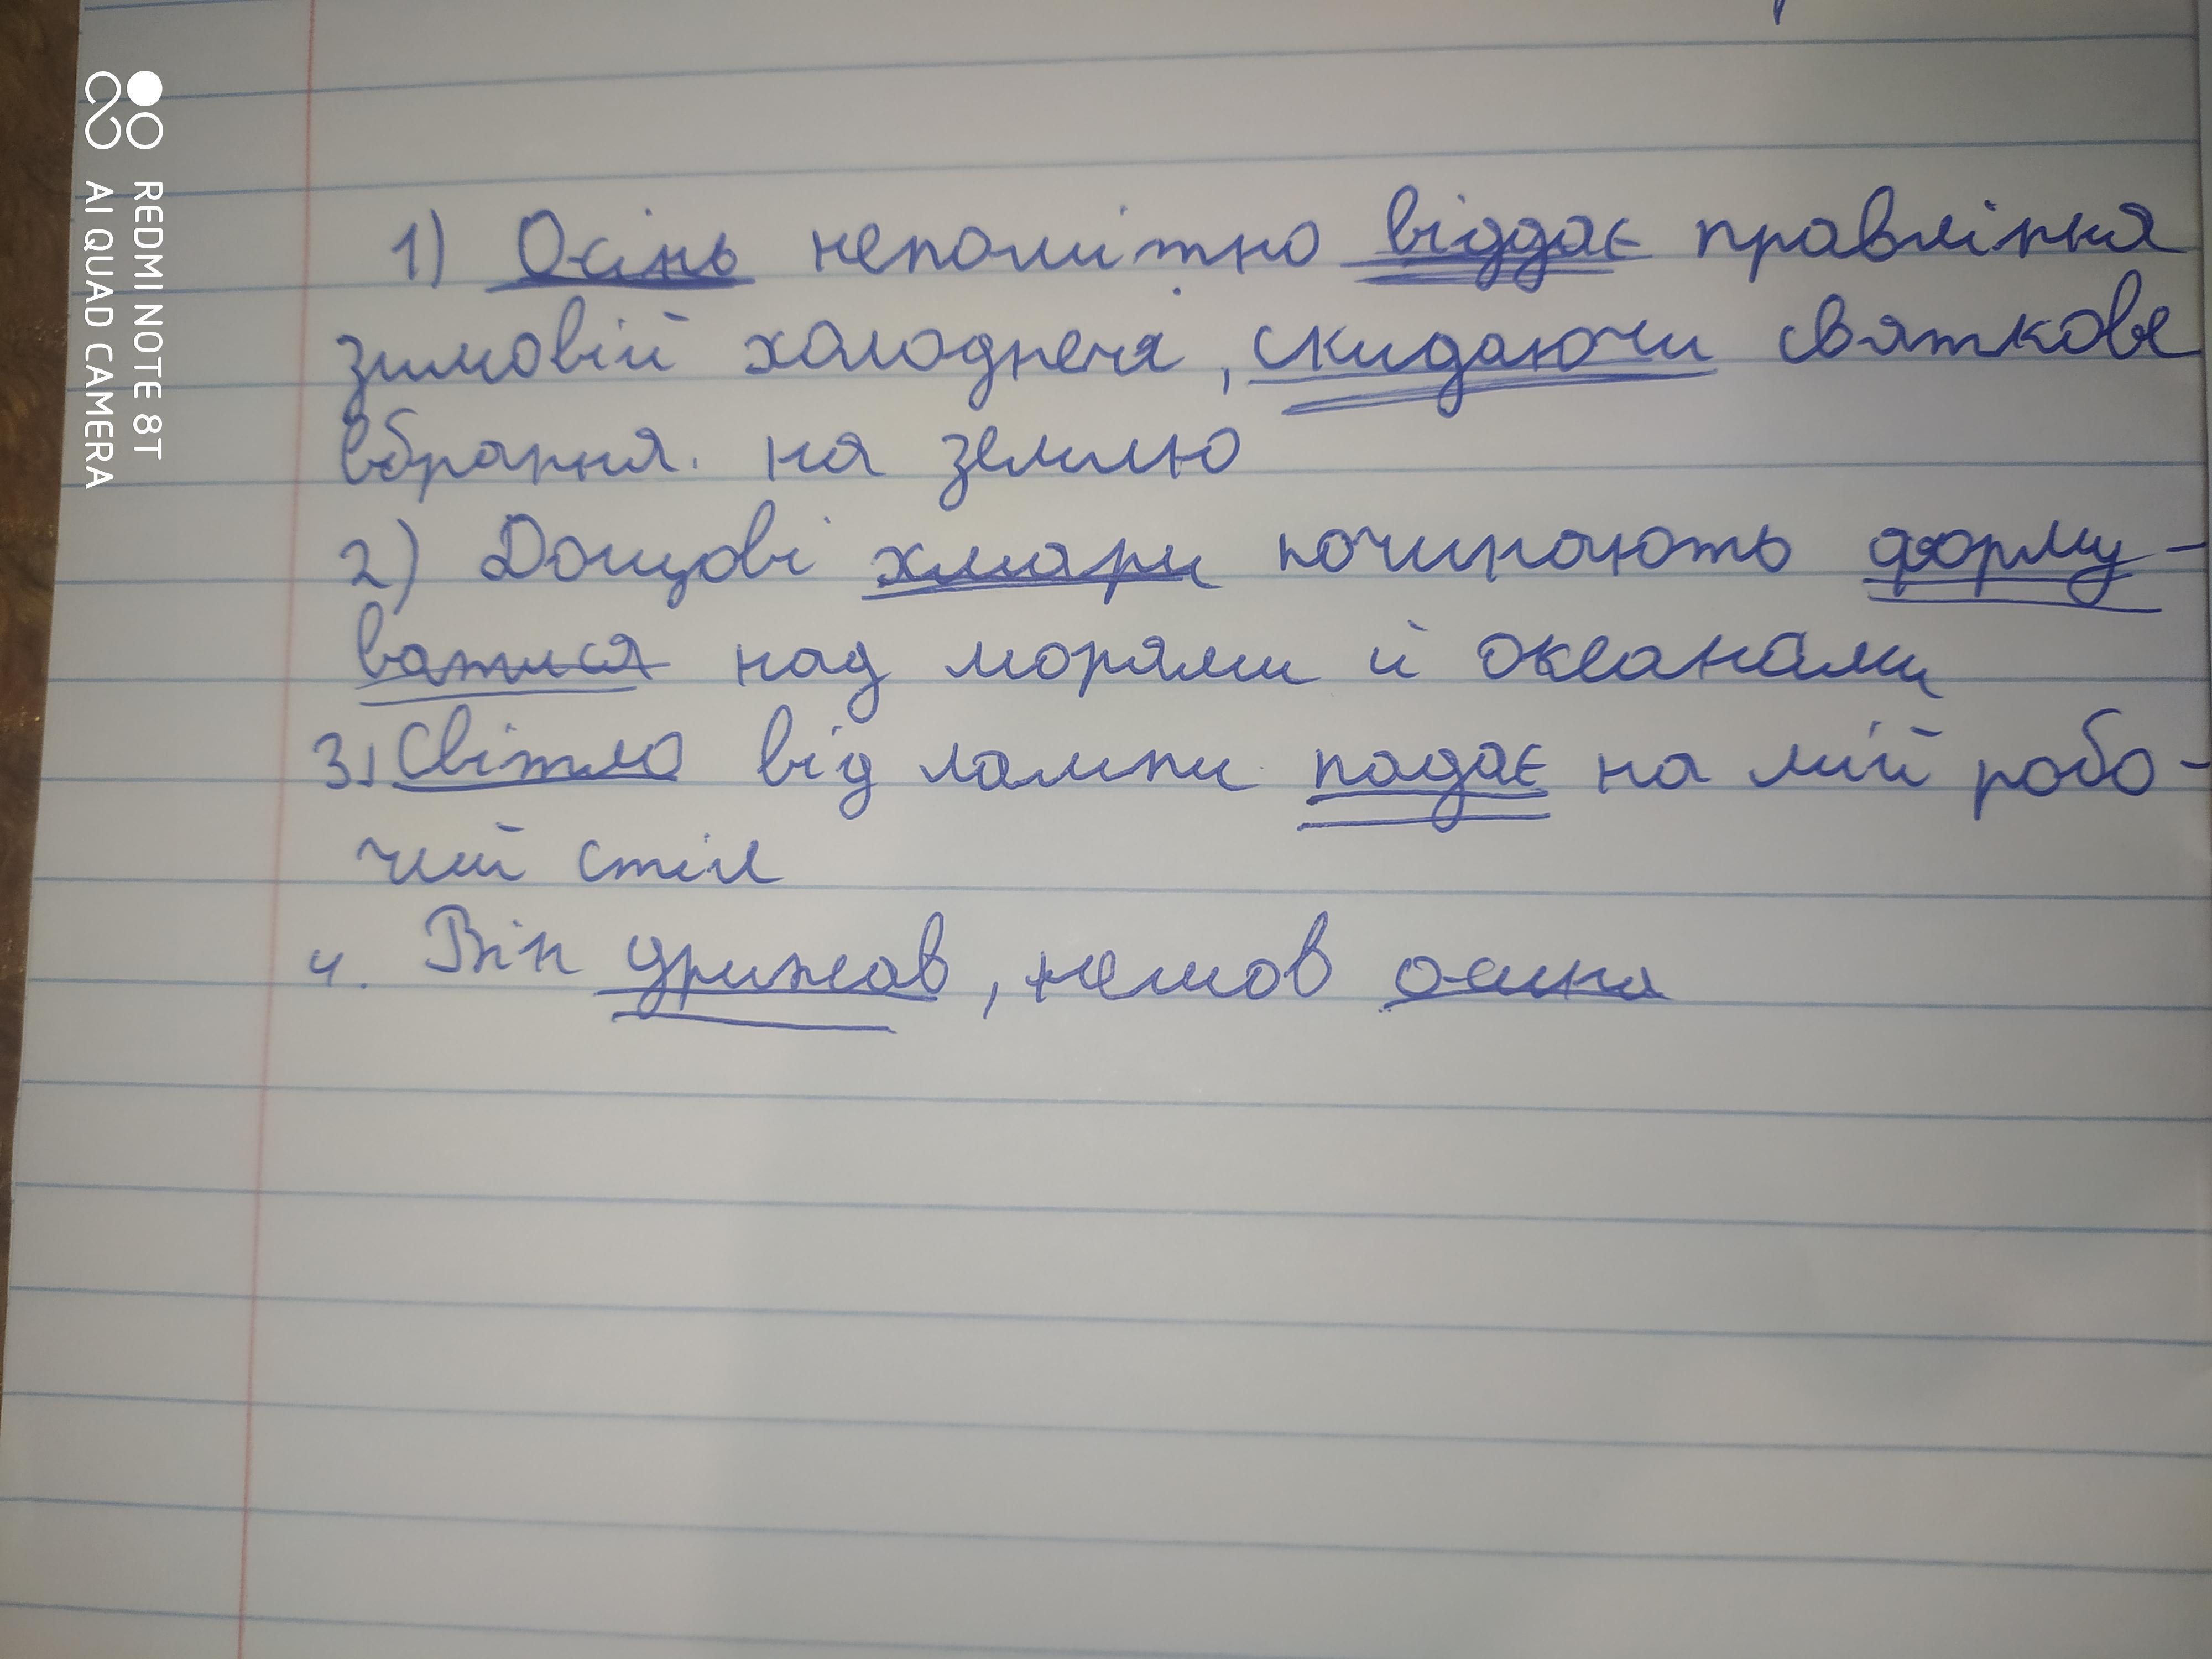 1) Осінь непомітно віддає правління
зимовій холоднечі, скидаючи святкове
вбрання. на землю
2) Дощові хмари починають форму-
ватися над морями й океанами
3) Світло від лампи падає на мій робо-
чий стіл
4. Він дрижав, немов осина
REDMI NOTE 8T
AI QUAD CAMERA